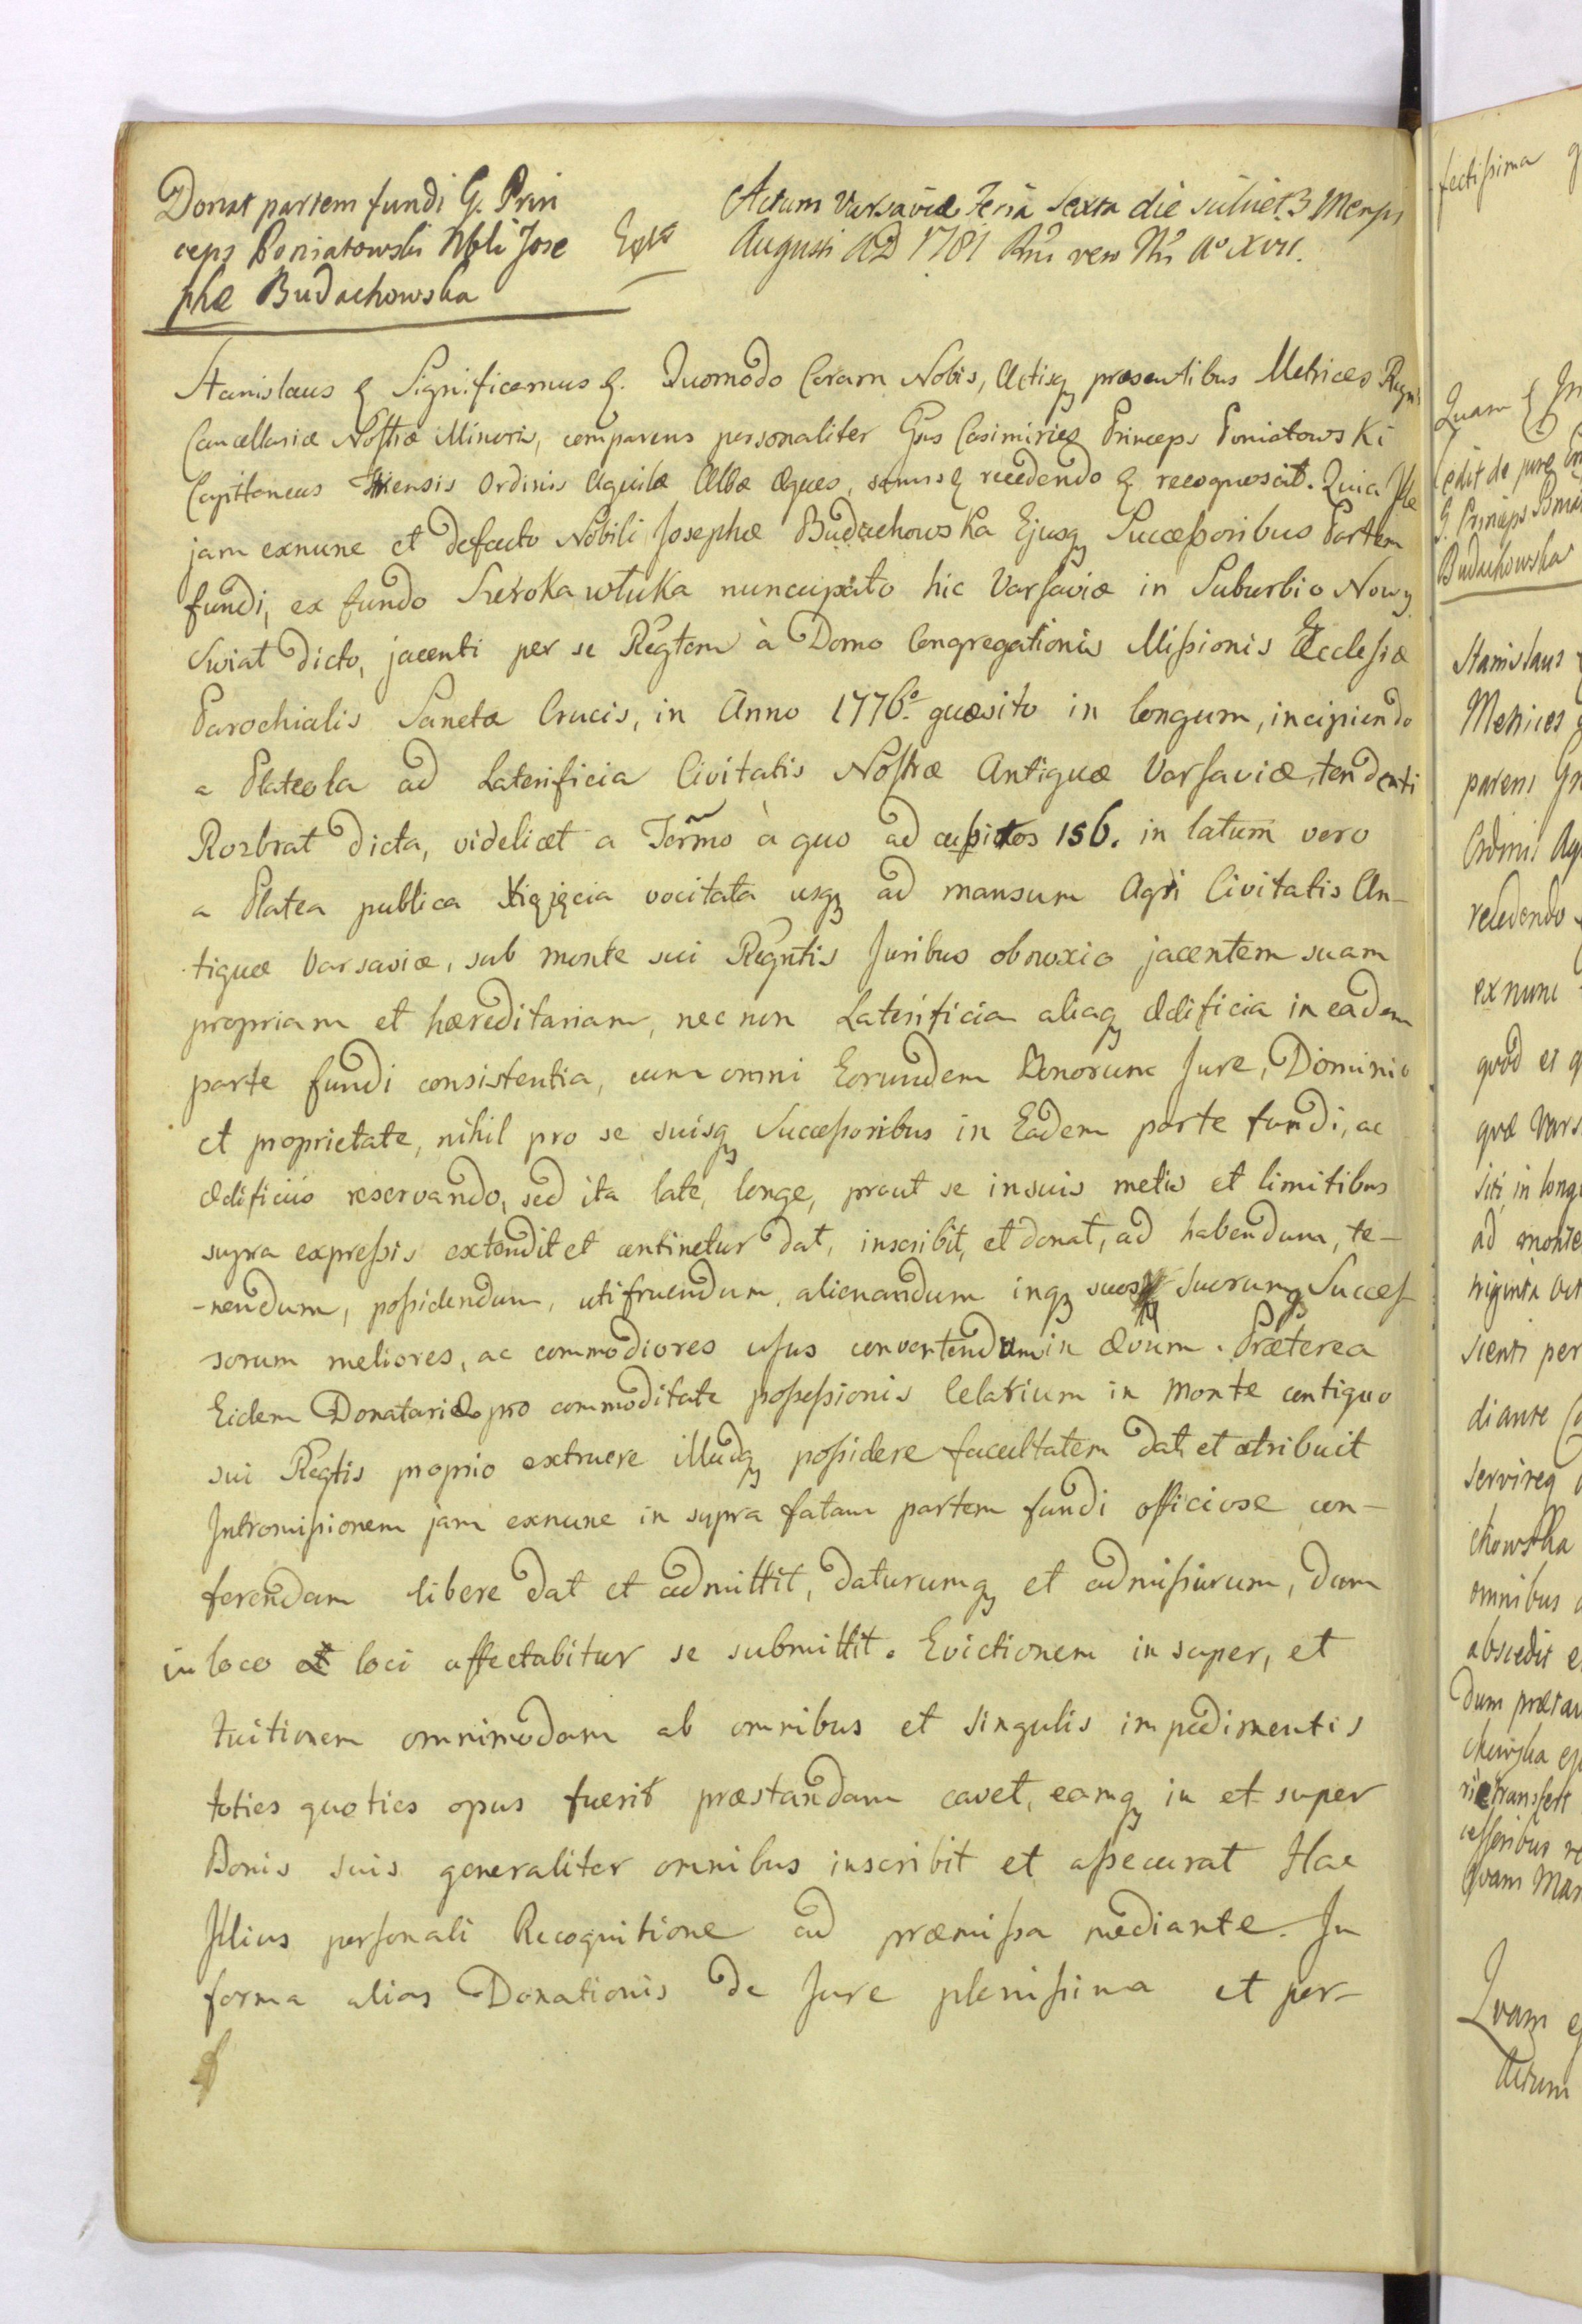 Donat partem fundi G. Prin
ceps Poniatowski Nbli Jose
phæ Budachowska
Actum Varsaviæ Feria Sexta die 3 Mensis
Augusti AD 1781 Rni vero Nri Ao XVII.
Stanislaus & Significamus &. Quomodo Coram Nobis, Actisq præsentibus Metrices Regni
Cancellariæ Nostræ Minoris, comparens personaliter Gnus Casimirius Princeps Poniatowski
Capitaneus Ordinis Aquilæ Albæ Eques, sanus & recedendo & recognoscit. Quia Ille
jam exnunc et defacto Nobili Josephæ Budachowska Ejusq Successoribus Partem
fundi, ex fundo Szeroka włuka nuncupato hic Varsaviæ in Suburbio Nowy
Swiat dicto, jacenti per se Regtem à Domo Congregationis Missionis Ecclesiæ
Parochialis Sanctæ Crucis, in Anno 1776o quæsito in longum, incipiendo
a Plateola ad Laterificia Civitatis Nostræ Antiquæ Varsaviæ, tendenti
Rozbrat dicta, videlicet a Termo à quo ad cubitos 156. in latum vero
a Platea publica Xiążęcia vocitata usq ad mansum Agri Civitatis An-
tiquæ Varsaviæ, sub monte sui Regntis Juribus obnoxio jacentem suam
propriam et hæreditariam, nec non Laterificia aliaq Ædificia in eadem
parte fundi consistentia, cum omni Eorundem Bonorum Jure, Dominio
et proprietate, nihil pro se suisq Successoribus in Eadem parte fundi, ac
ædificiis reservando, sed ita late, longe, prout se in suis metis et limitibus
supra expressis extendit et continetur dat, inscribit, et donat, ad habendum, te-
-nendum, possidendum, utifruendum, alienandum inq suos suorumq Succes
sorum meliores, ac commodiores usus convertendum in ævum. Præterea
Eidem Donatariæ pro commoditate possessionis Celarium in Monte contiguo
sui Regtis proprio extruere illudq possidere facultatem dat et atribuit
Intromissionem jam exnunc in supra fatam partem fundi officiose con-
ferendam libere dat et admittit, daturumq et admissurum, dum
in loco et loci affectabitur se submittit. Evictionem in super, et
tuitionem omnimodam ab omnibus et singulis impedimentis
toties quoties opus fuerit præstandam cavet, eamq in et super
Bonis suis generaliter omnibus inscribit et assecurat Hac
Illius personali Recognitione ad præmissa mediante. In
forma alias Donationis de Jure plenissima et per-
fectissima
Quam &
Cedit de jure
G. Princeps
Budachowska
Stanislaus
Metrices
parens
Ordinis
recedendo
ex nunc
quod et
quæ Vars
siti in long
ad monte
triginta
scienti per
diante
servireq
chowska
omnibus
abscedit
dum præta
chowska
transfert
cessoribus
quam
Quam
Actum